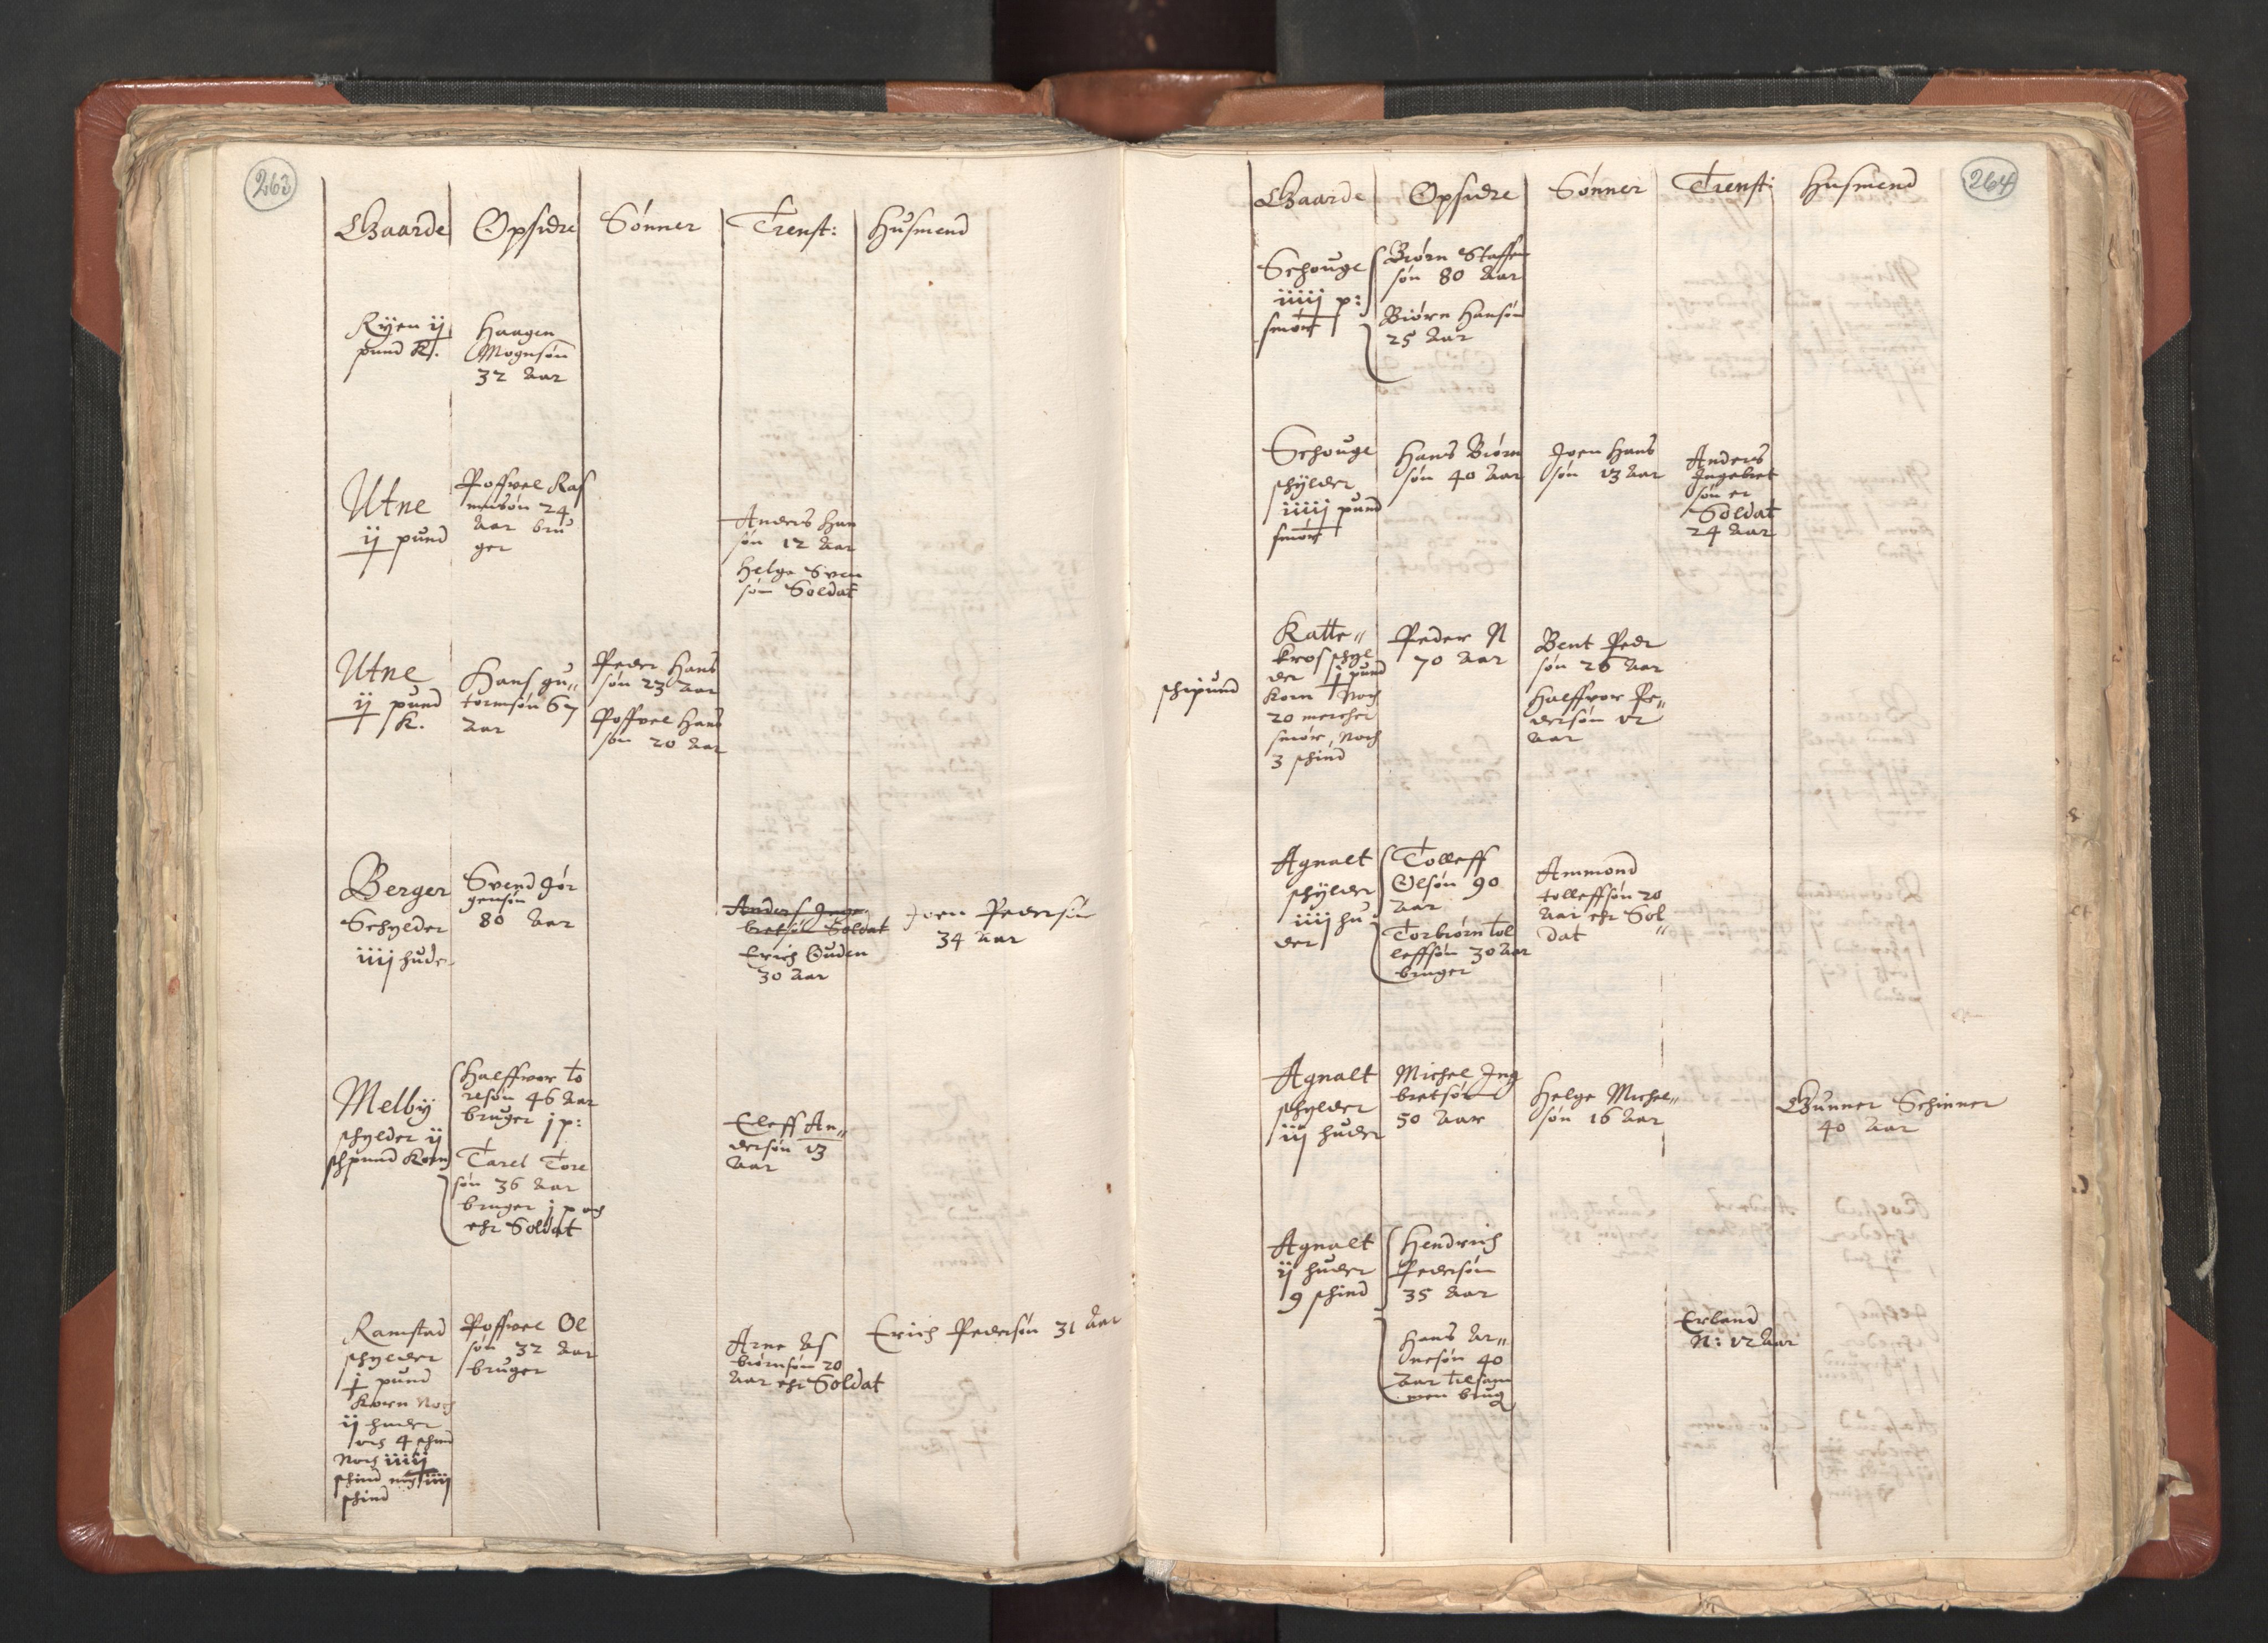 263
Gaarde Opsidre Sønner Trenst: Husmend
Ryen ij
pund K.
Haagen
Mognsøn
32 Aar
Utne
ij pund
Poffvel Ras
musøn 24
Aar bru
ger
Anders Han
søn 12 Aar
Helge Sven
søn Soldat
Utne
ij pund
K.
Hans gu„
tormsøn 67
Aar
Peder Hans
søn 23 Aar
Poffvel Hans
søn 20 Aar
Berger
Schylder
iiij hude
Svend Jør
gensøn
80 Aar
Anders Inge
bretsøn Soldat
Erich Ouden
30 Aar
Joen Pedersøn
34 Aar
Melby
schylder ij
schpund Korn
Halffvor to
relsøn 46 Aar
bruger j p:
Tarel Tore
søn 36 Aar
bruger j p och
ehr Soldat
Eleff An„
dersøn 13
Aar
Ramstad
schylder
j pund
Korn Noch
ij huder
och 4 schind
Noch iiiij
schind noch iiij
schind
Poffvel Ol
søn 32 Aar
bruger
Arne As
biørnsøn 20
Aar ehr Soldat
Erich Pedersøn 31 Aar
264
Gaarde Opsidre Sønner Trenst: Husmend
Schouge
iiiij p:
smør
Biørn Staffen
søn 80 Aar
Biørn Hansøn
25 Aar
Schouge
schylder
iiiij pund
smør
Hans Biørn
søn 40 Aar
Joen Hans
søn 13 Aar
Anders
Ingebret
søn er
Soldat
24 Aar
schipund
Katte„
kros schyl
der j pund
Korn Noch
20 mercher
smør, Noch
3 schind
Peder N
70 Aar
Bent Pedr
søn 26 Aar
Halffvor Pe„
dersøn 12
Aar
Agnalt
schylder
iiij hu
der
Tolleff
Olsøn 90
Aar
Torbiørn tol
leffsøn 30 Aar
bruger
Ammond
tolleffsøn 20
Aar ehr Sol„
dat
Agnalt
schylder
iij huder
Michel Ing
bretsøn
50 Aar
Helge Michel„
søn 16 Aar
Gunner Schinner
40 Aar
Agnalt
ij huder
9 schind
Hendrich
Pedersøn
35 Aar
Hans Ar„
nesøn 40
Aar tilsam
men brug
Erland
N: 12 Aar